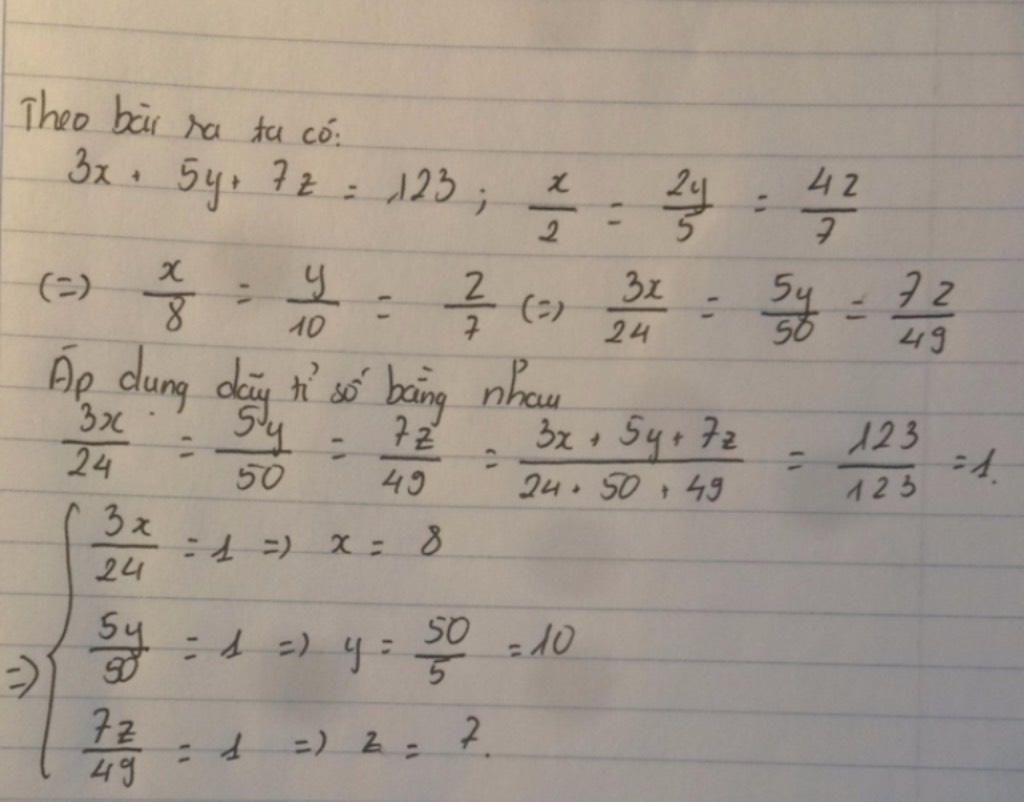 Theo bài ra ta có:
3x + 5y + 7z = 123 ; x/2 = 2y/5 = 4z/7
(=) x/8 = y/10 = z/7 (=) 3x/24 = 5y/50 = 7z/49
Áp dung dãy tỉ số bằng nhau
3x/24 = 5y/50 = 7z/49 = 3x + 5y + 7z/24 + 50 + 49 = 123/123 = 1.
=> { 3x/24 = 1 => x = 8
5y/50 = 1 => y = 50/5 = 10
7z/49 = 1 => z = 7.